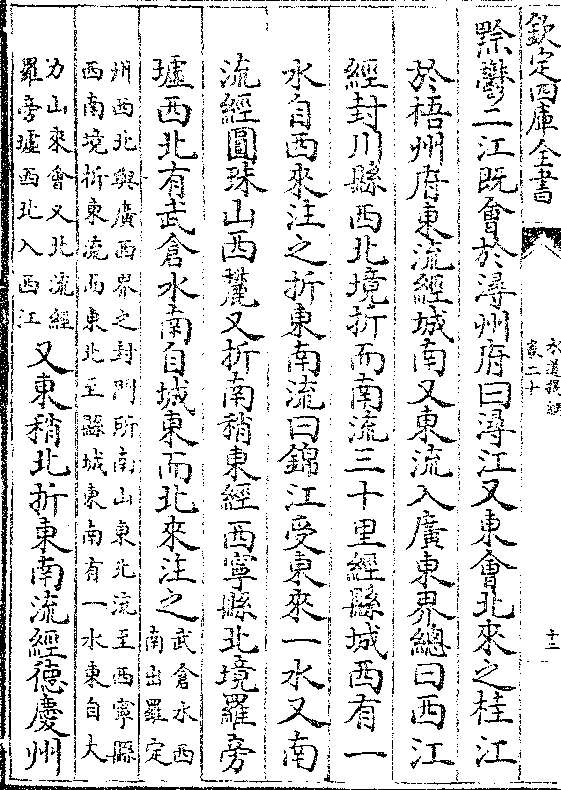 欽定四庫全書
水道提綱
卷二十
十二
黔鬱二江既會於潯州府曰潯江又東會北來之桂江
於梧州府東流經城南又東流入廣東界總曰西江
經封川縣西北境折而南流三十里經縣城西有一
水自西來注之折東南流曰錦江受東來一水又南
流經圓珠山西麓又折南稍東經西寧縣北境羅旁
墟西北有武倉水南自城東而北來注之
武倉水西
南出羅定
州西北與廣西界之封門所南山東北流至西寧縣
西南境折東流而東北至縣城東南有一水東自大
力山來會又北流經
羅旁墟西北入西江
又東稍北折東南流經德慶州